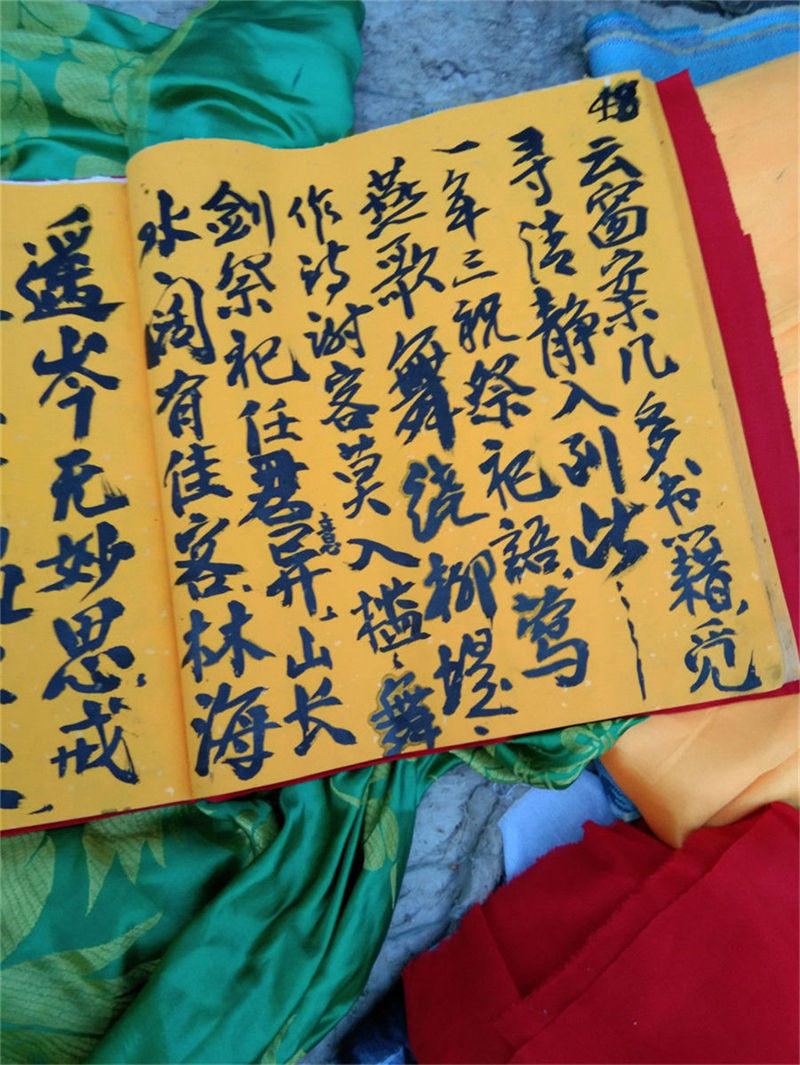 48
云窗案几多书籍,觅
寻洁静入到此……
一年三祝祭祀語,莺
燕歌舞绕柳堤,
作诗谢客莫入槛,舞
剑祭祀任君意异,山长
水阔有佳客,林海
遥岑无妙思,戒